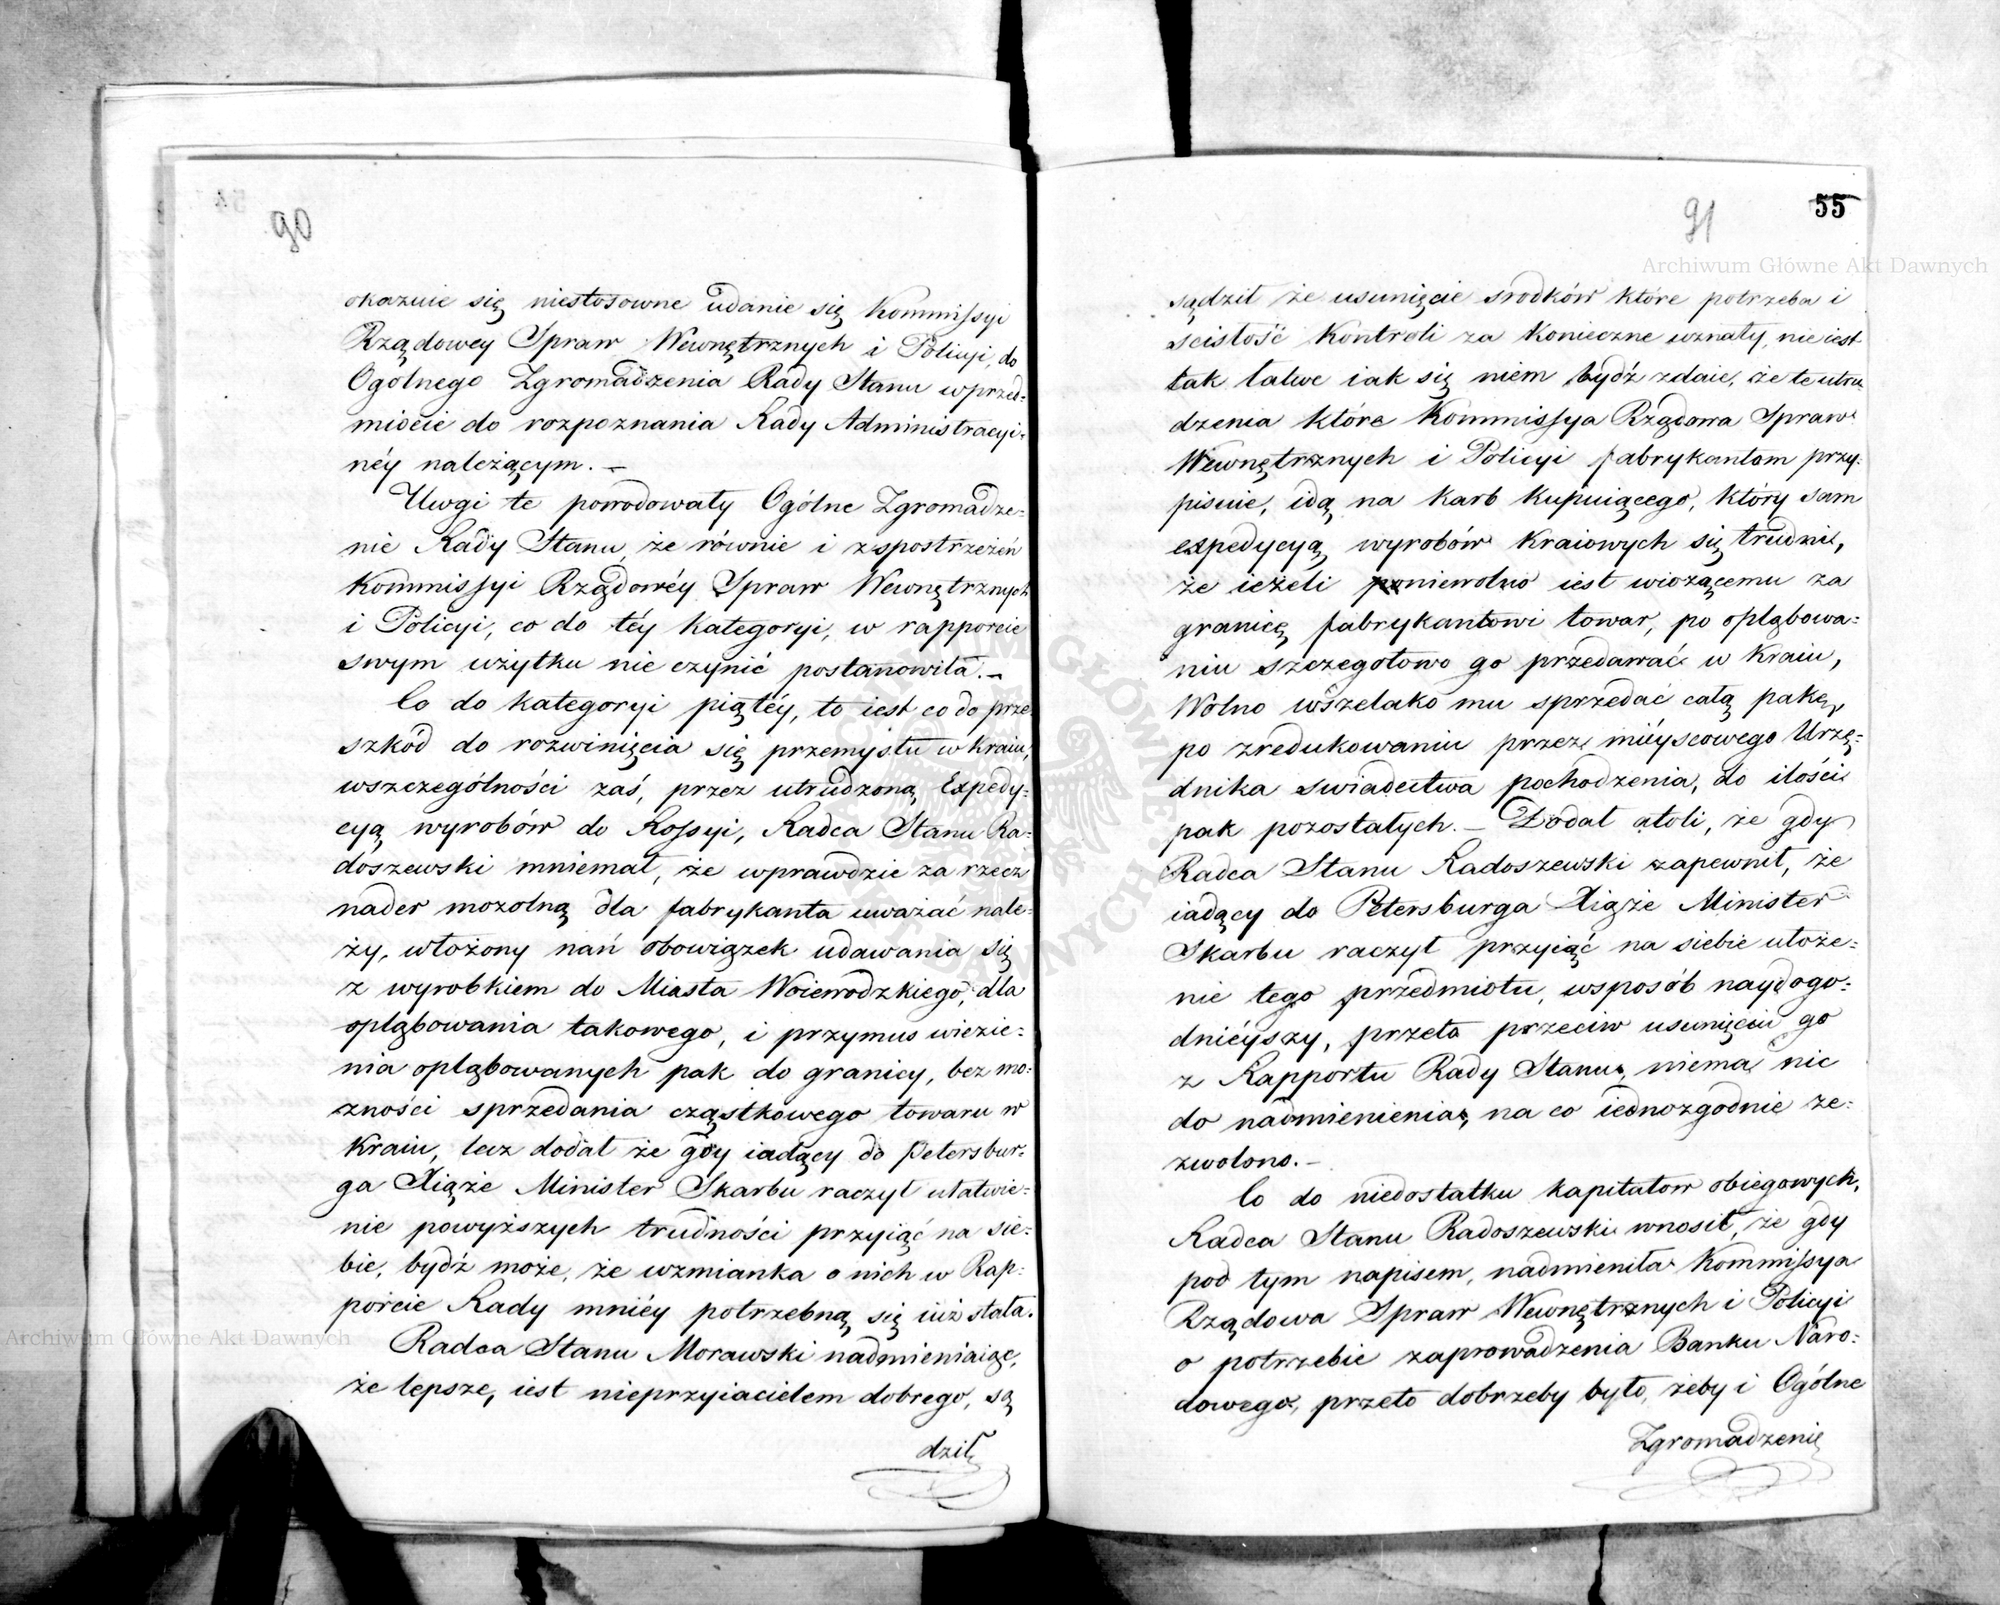 90
okazuie się niestosowne udanie się Kommissyi
Rządowey Spraw Wewnętrznych i Policyi, do
Ogólnego Zgromadzenia Rady Stanu w przed-
miocie do rozpoznania Rady Administracyi-
néy należącym. —
Uwgi te powodowały Ogólne Zgromadze-
nie Rady Stanu, że równie i z spostrzeżeń
Kommissyi Rządowéy Spraw Wewnętrznych
i Policyi, co do téy kategoryi, w rapporcie
swym użytku nie czynić postanowiła. —
Co do kategoryi piątéy, to iest co do prze-
szkód do rozwinięcia się przemysłu w kraiu,
wszczególności zaś, przez utrudzoną Expedy-
cyą wyrobów do Rossyi, Radca Stanu Ra-
doszewski mniemał, że wprawdzie za rzecz
nader mozolną dla fabrykanta uważać nale-
ży, włożony nań obowiązek udawania się
z wyrobkiem do Miasta Woiewodzkiego, dla
opląbowania takowego, i przymus wiezie-
nia opląbowanych pak do granicy, bez mo-
żności sprzedania cząstkowego towaru w
Kraiu, lecz dodał że gdy iadący do Petersbur-
ga Xiąże Minister Skarbu raczył ułatwie-
nie powyższych trudności przyiąć na sie-
bie, bydź może, że wzmianka o nich w Rap-
porcie Rady mniéy potrzebną się iuż stała.
Radca Stanu Morawski nadmieniaiąc,
że lepsze, iest nieprzyiacielem dobrego, są
dził
91
55
sądził że usunięcie srodków które potrzeba i
scisłość Kontroli za konieczne uznały, nie iest
tak łatwe iak się niem bydź zdaie, że te utru
dzenia które Kommissya Rządowa Spraw
Wewnętrznych i Policyi fabrykantom przy-
pisuie, idą na karb kupuiącego, który sam
expedycyą wyrobów kraiowych się trudni,
że ieżeli poniewolno iest wiozącemu za
granicę fabrykantowi towar, po opląbowa-
niu szczegółowo go przedawać w Kraiu,
Wolno wszelako mu sprzedać całą pakę,
po zredukowaniu przez mieyscowego Urzę-
dnika swiadectwa pochodzenia, do ilości
pak pozostałych. — Dodał atoli, że gdy
Radca Stanu Radoszewski zapewnił, że
iadący do Petersburga Xiąże Minister
Skarbu raczył przyiąć na siebie ułoże-
nie tego przedmiotu, wsposób naydogo-
dniéyszy, przeto przeciw usunięciu go
z Rapportu Rady Stanu, niema nic
do nadmienienia, na co iednozgodnie ze-
zwolono. —
Co do niedostatku kapitałow obiegowych,
Radca Stanu Radoszewski wnosił, że gdy
pod tym napisem, nadmieniła Kommissya
Rządowa Spraw Wewnętrznych i Policyi
o potrzebie zaprowadzenia Banku Naro-
dowego, przeto dobrzeby było, żeby i Ogólne
Zgromadzenie
Archiwum Główne Akt Dawnych
Archiwum Główne Akt Dawnych